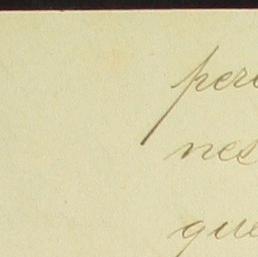 pere
nes
que